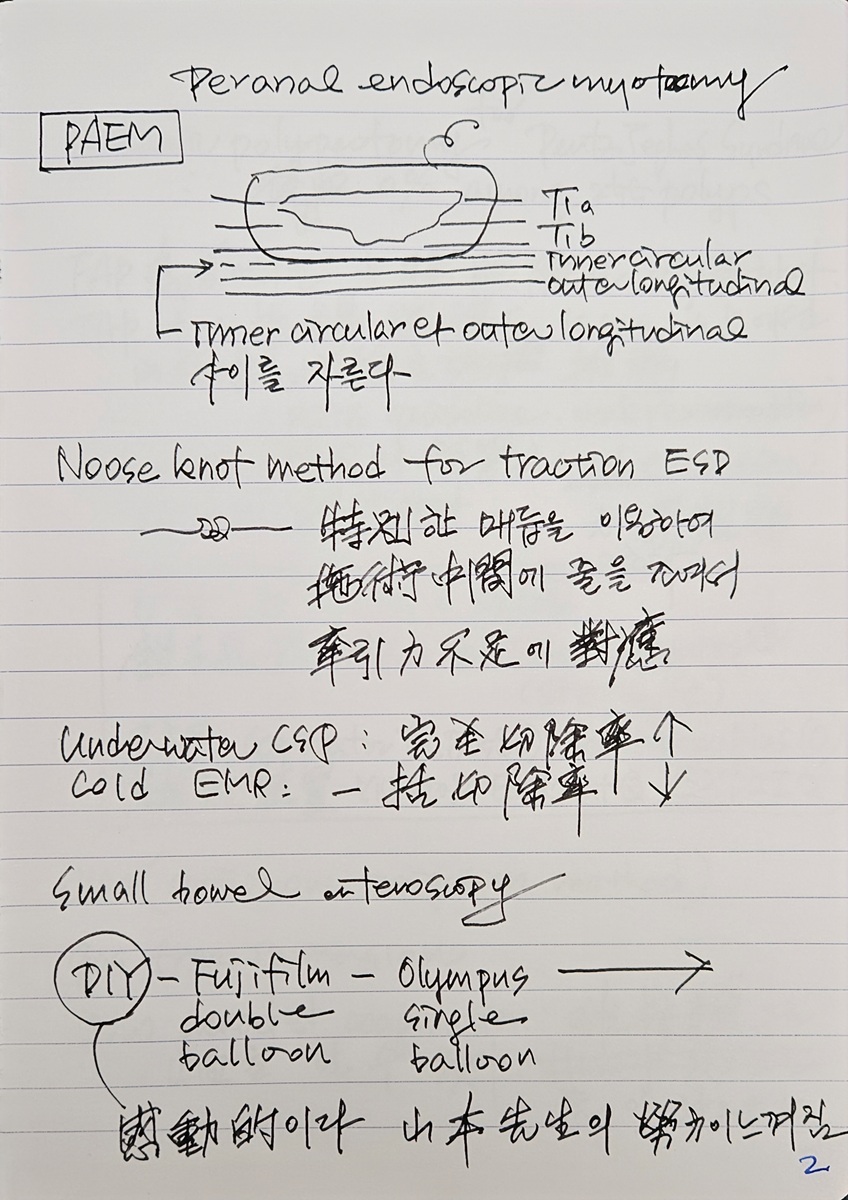 Peranal endoscopic myotomy
PAEM
T1a
T1b
inner circular
outer longitudinal
inner circular과 outer longitudinal
사이를 자른다
Noose knot method for traction ESD
特別한 매듭을 이용하여
施術 中間에 줄을 조여서
牽引力不足에 對應
Underwater CSP : 完全切除率 ↑
Cold EMR : 一括切除率 ↓
Small bowel enteroscopy
DIY - Fujifilm - Olympus →
double single
balloon balloon
感動的이다 山本先生의 努力이 느껴짐
2